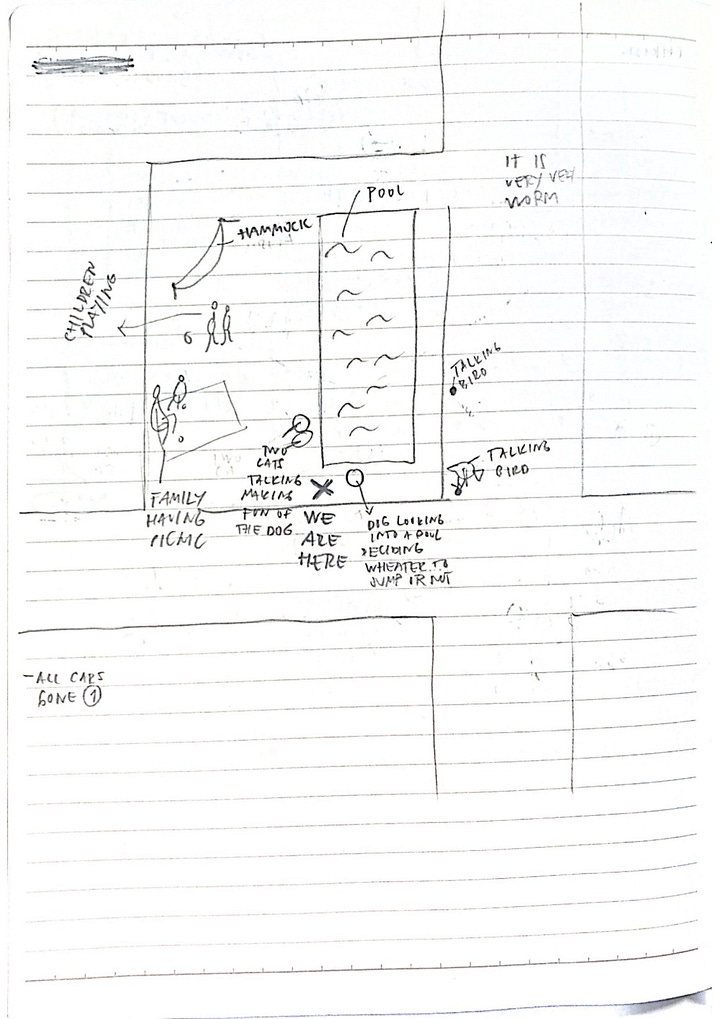 IT IS
VERY VERY
WORM
POOL
HAMMOCK
CHILDREN
PLAYING
TALKING
BIRD
TALKING
BIRD
TWO
CATS
TALKING
MAKING
FUN OF
THE DOG
FAMILY
HAVING
PICNIC
WE
ARE
HERE
DOG LOOKING
INTO A POOL
DECIDING
WHEATER TO
JUMP OR NOT
-ALL CARS
GONE 1